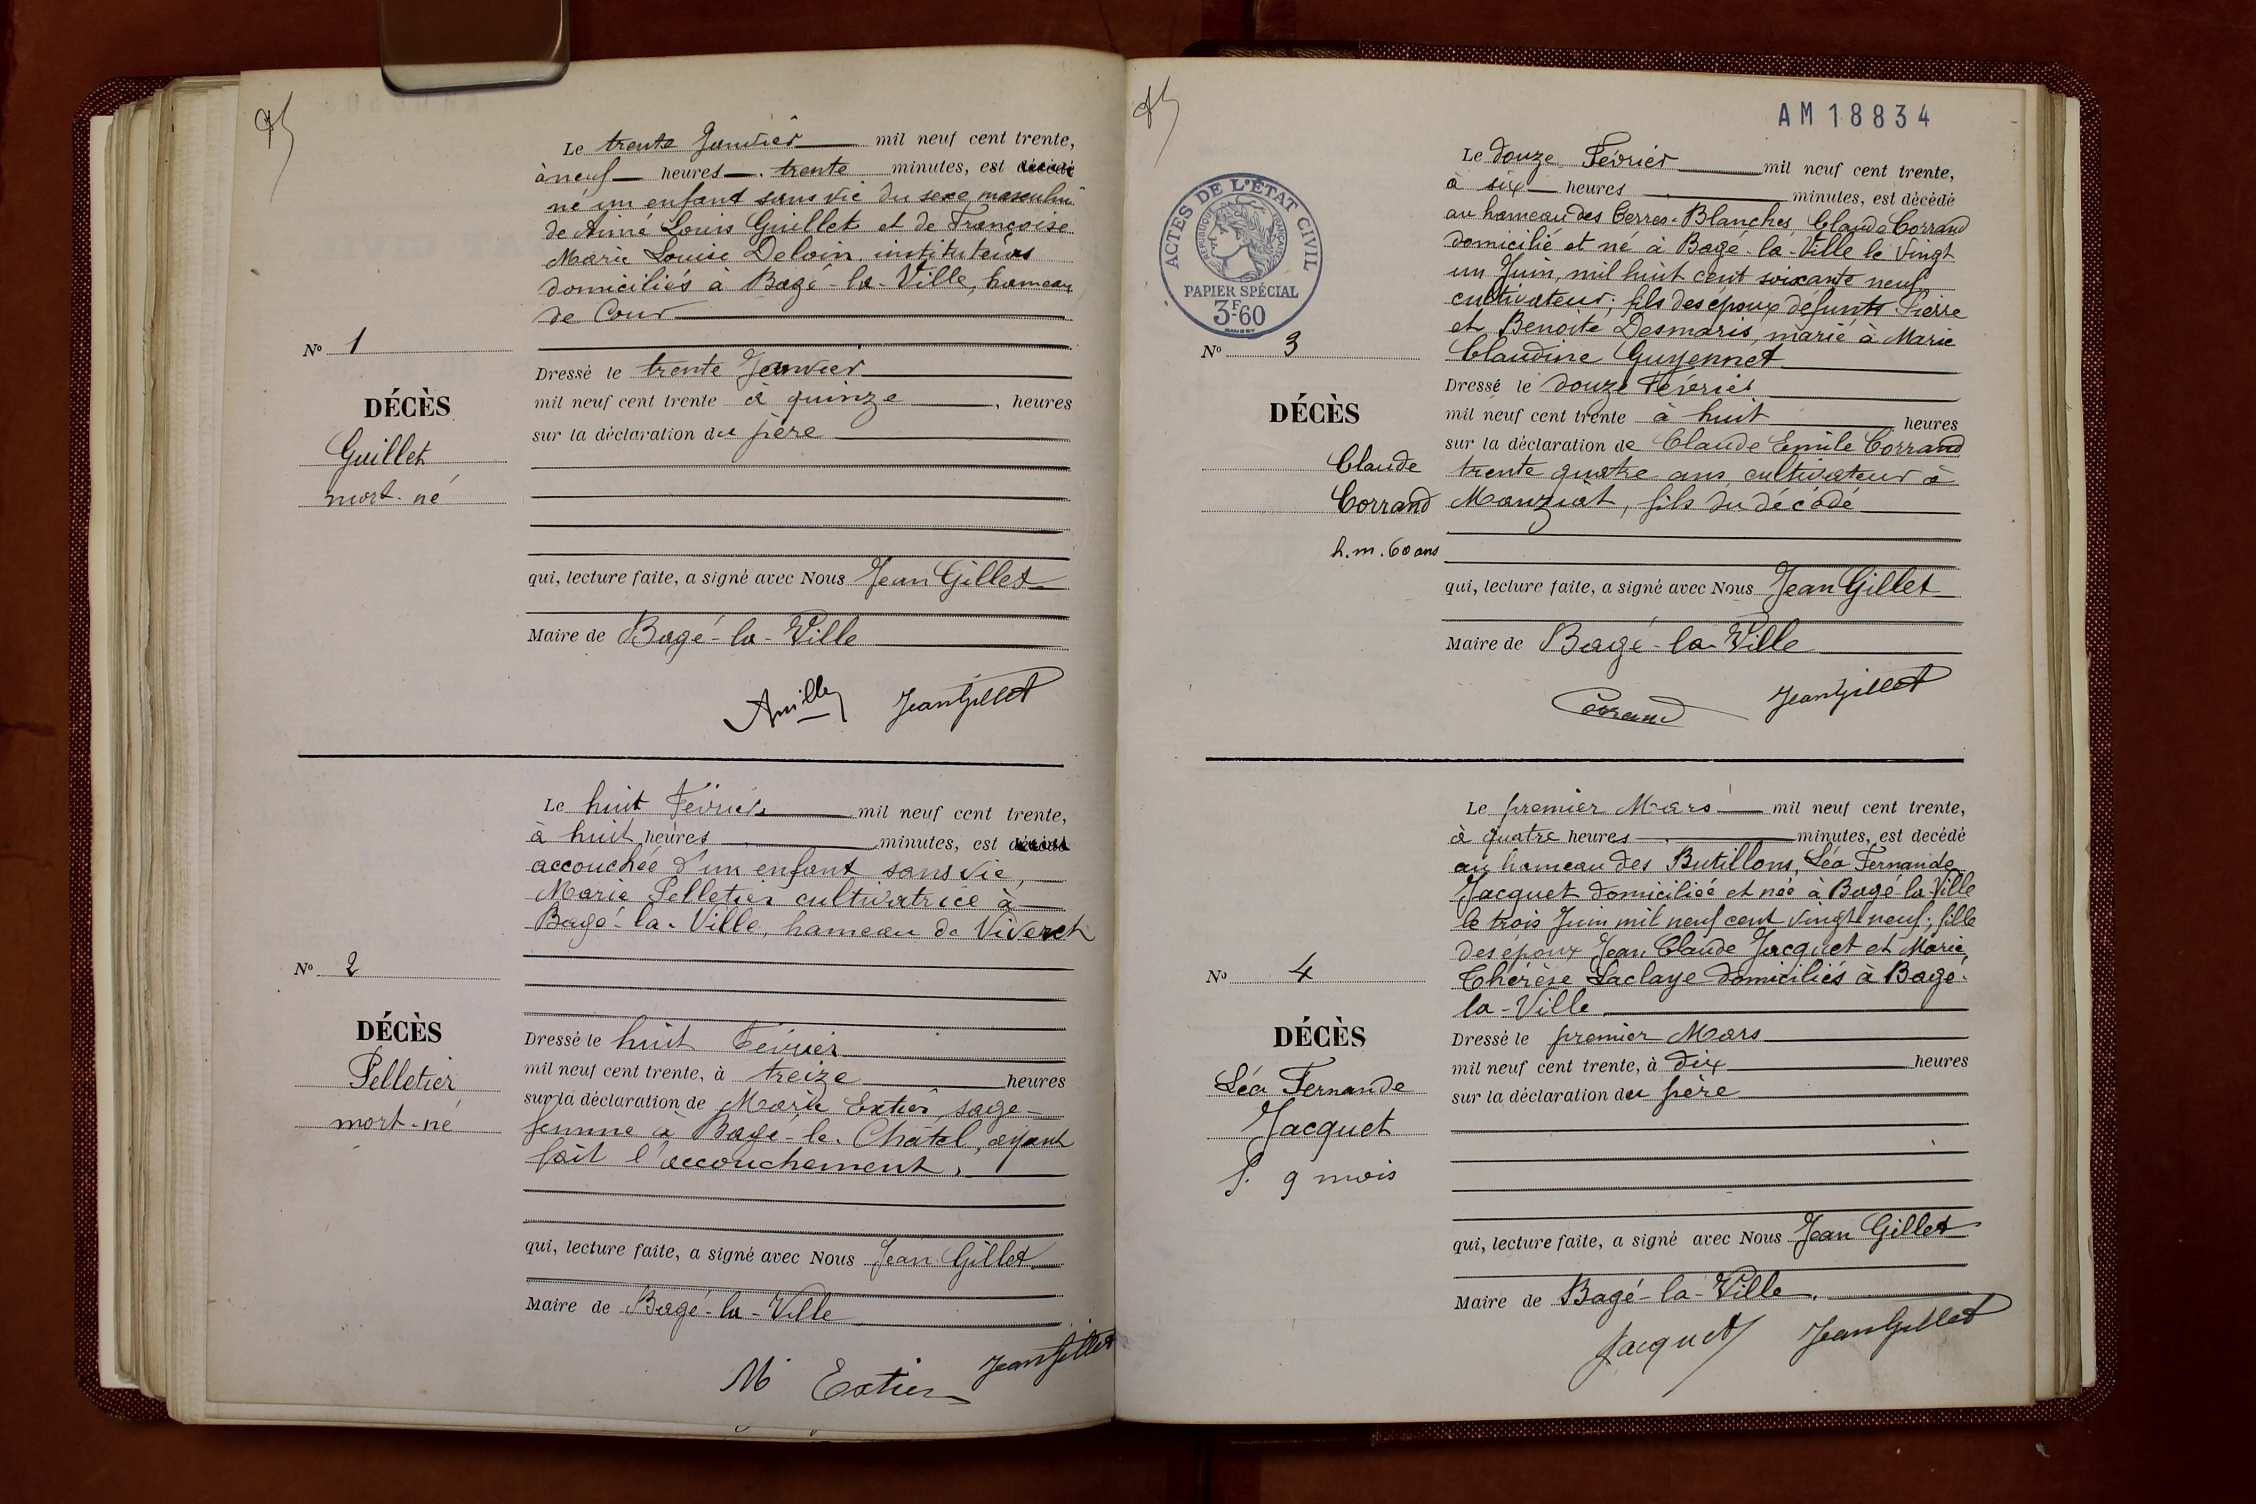 Le trente Janvier mil neuf cent trente,
à neuf heures trente minutes, est décédé
né un enfant sans vie du sexe masculin
de Aimé Louis Guillet et de Françoise
Marie Louise Deloin instituteurs
domiciliés à Bagé-la-Ville, hameau
de Cour
N° 1
DÉCÈS
Guillet
mort-né
Dressé le trente Janvier
mil neuf cent trente à quinze heures
sur la déclaration du père
qui, lecture faite, a signé avec Nous Jean Gillet
Maire de Bagé-la-Ville
JeanGillet
Le huit Février mil neuf cent trente,
à huit heures minutes, est décédé
accouchée d'un enfant sans vie,
Marie Pelletier cultivatrice à
Bagé-la-Ville, hameau de Viveret
N° 2
DÉCÈS
Pelletier
mort-né
Dressé le huit Février
mil neuf cent trente, à treize heures
sur la déclaration de Marie Extier sage-
femme à Bagé-le-Châtel, ayant
fait l'accouchement.
qui, lecture faite, a signé avec Nous Jean Gillet
Maire de Bagé-la-Ville
M Extier JeanGillet
AM 18834
ACTES DE L'ÉTAT CIVIL
RÉPUBLIQUE FRANÇAISE
PAPIER SPÉCIAL
3F60
Le douze Février mil neuf cent trente,
à six heures minutes, est décédé
au hameau des Terres-Blanches, Claude Corrand
domicilié et né à Bagé-la-Ville le vingt
un Juin, mil huit cent soixante neuf,
cultivateur; fils des époux défunts Pierre
et Benoite Desmaris, marié à Marie
Claudine Guyennet
N° 3
DÉCÈS
Claude
Corrand
h. m. 60 ans
Dressé le douze Février
mil neuf cent trente à huit heures
sur la déclaration de Claude Emile Corrand
trente quatre ans, cultivateur à
Manziat, fils du décédé
qui, lecture faite, a signé avec Nous Jean Gillet
Maire de Bagé-la-Ville
Corrand JeanGillet
Le premier Mars mil neuf cent trente,
à quatre heures minutes, est decédé
au hameau des Butillons, Léa Fernande
Jacquet domiciliée et née à Bagé-la-Ville
le trois Juin mil neuf cent vingt neuf; fille
des époux Jean Claude Jacquet et Marie
Thérèse Laclaye domiciliés à Bagé-
la-Ville
N° 4
DÉCÈS
Léa Fernande
Jacquet
f. 9 mois
Dressé le premier Mars
mil neuf cent trente, à dix heures
sur la déclaration du père
qui, lecture faite, a signé avec Nous Jean Gillet
Maire de Bagé-la-Ville.
Jacquet JeanGillet